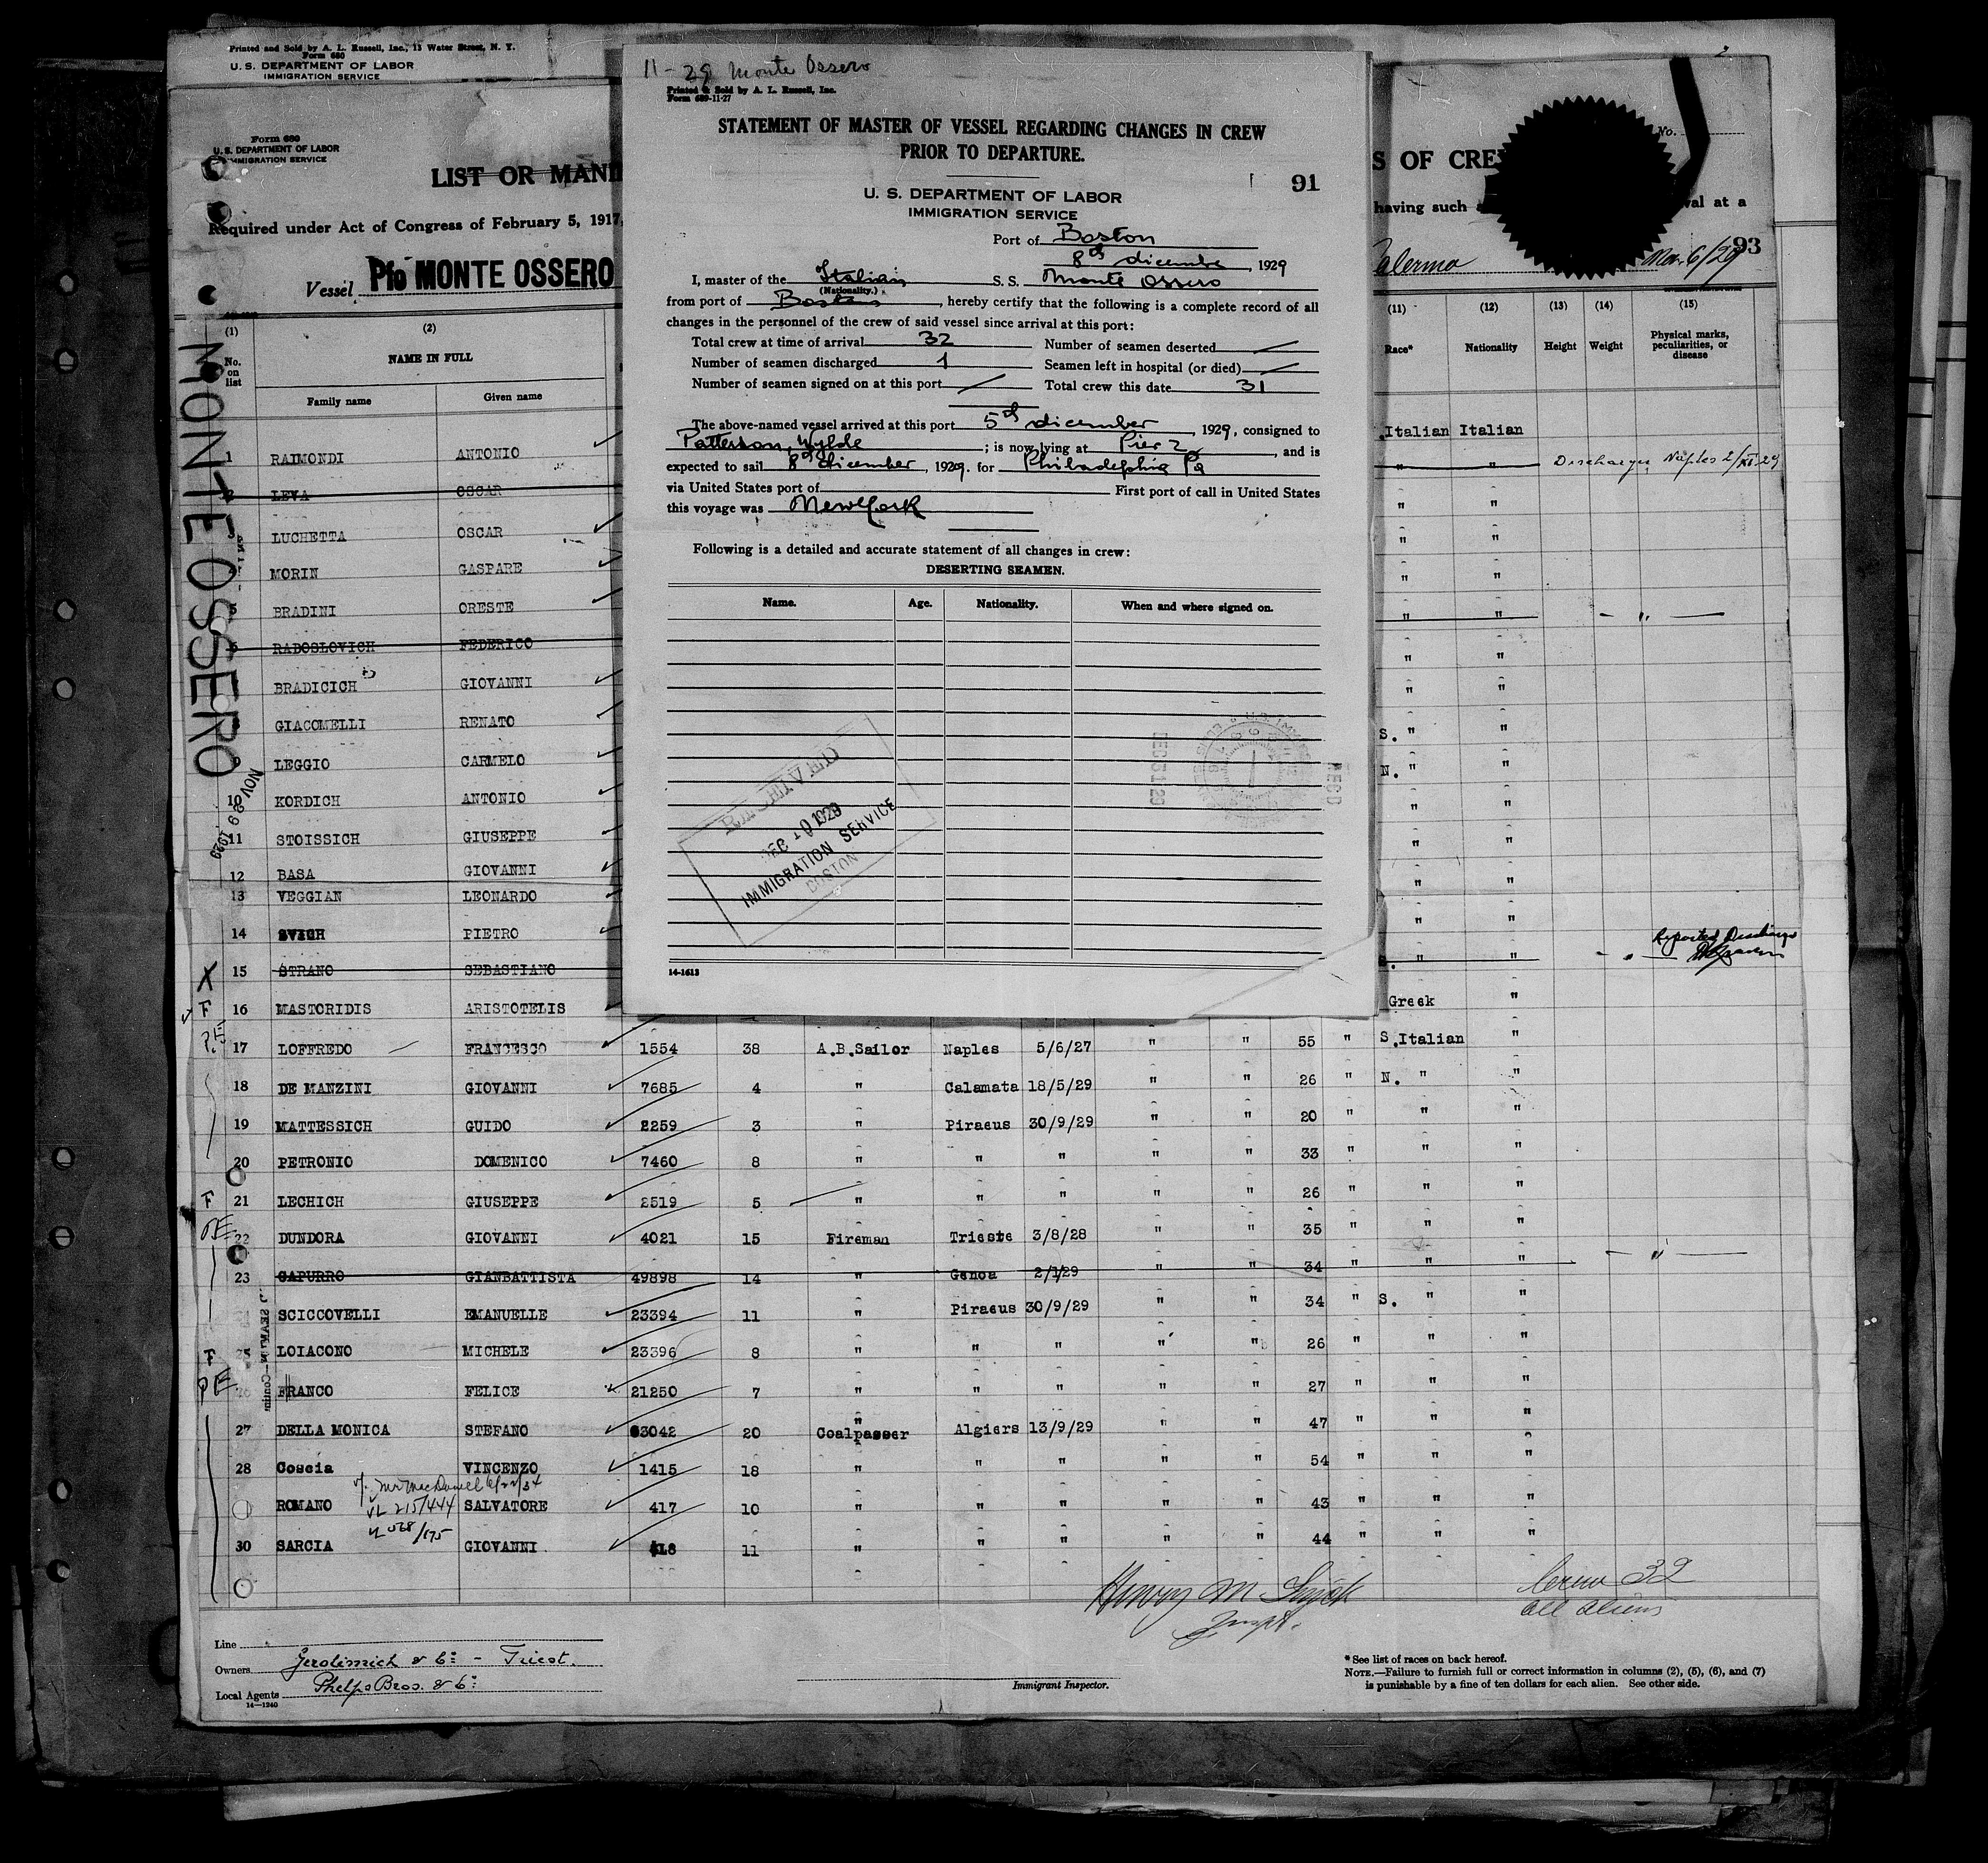 Printed and Sold by A. L. Russell, Inc., 13 Water Street, N. Y.
Form 680
U. S. DEPARTMENT OF LABOR
IMMIGRATION SERVICE
Form 680
U. S. DEPARTMENT OF LABOR
IMMIGRATION SERVICE
LIST OR MANI
Required under Act of Congress of February 5, 1917,
Vessel Pfo MONTE OSSERO
MONTE OSSERO
NOV 29 1929
11-29 Monte Ossero
Printed & Sold by A. L. Russell, Inc.
Form 689-11-27
STATEMENT OF MASTER OF VESSEL REGARDING CHANGES IN CREW
PRIOR TO DEPARTURE.
91
U. S. DEPARTMENT OF LABOR
IMMIGRATION SERVICE
Port of Boston
8th dicembre, 1929
I, master of the Italian S. S. Monte Ossero
(Nationality.)
from port of Boston, hereby certify that the following is a complete record of all
changes in the personnel of the crew of said vessel since arrival at this port:
Total crew at time of arrival 32 Number of seamen deserted /
Number of seamen discharged 1 Seamen left in hospital (or died) /
Number of seamen signed on at this port / Total crew this date 31
The above-named vessel arrived at this port 5th dicember, 1929, consigned to
Patterson, Wylde; is now lying at Pier 2, and is
expected to sail 8th dicember, 1929. for Philadelphia Pa
via United States port of First port of call in United States
this voyage was New York
Following is a detailed and accurate statement of all changes in crew:
DESERTING SEAMEN.
Name. Age. Nationality. When and where signed on.
RECEIVED
DEC 10 1929
IMMIGRATION SERVICE
BOSTON
DEC 31 29
RECD
14-1613
S OF CREW
No.
having such
val at a
Palermo Nov. 6/29
93
(1) (2) (11) (12) (13) (14) (15)
No. on list NAME IN FULL Race* Nationality Height Weight Physical marks, peculiarities, or disease
Family name Given name
1 RAIMONDI ANTONIO Italian Italian
2 LEVA OSCAR " " Discharged Naples 2/XI 29
3 LUCHETTA OSCAR " "
4 MORIN GASPARE " "
5 BRADINI ORESTE " "
6 RADOSLOVICH FEDERICO " " - " -
BRADICICH GIOVANNI " "
8 GIACOMELLI RENATO " "
9 LEGGIO CARMELO S. " "
10 KORDICH ANTONIO N. " "
11 STOISSICH GIUSEPPE " "
12 BASA GIOVANNI " "
13 VEGGIAN LEONARDO " "
14 SVICH PIETRO " "
X 15 STRANO SEBASTIANO " " - " - Reported Discharge
F 16 MASTORIDIS ARISTOTELIS Greek "
P.E 17 LOFFREDO FRANCESCO 1554 38 A.B.Sailor Naples 5/6/27 " " 55 " S.Italian "
18 DE MANZINI GIOVANNI 7685 4 " Calamata 18/5/29 " " 26 " N. " "
19 MATTESSICH GUIDO 2259 3 " Piraeus 30/9/29 " " 20 " " "
20 PETRONIO DOMENICO 7460 8 " " " " " 33 " " "
F 21 LECHICH GIUSEPPE 2519 5 " " " " " 26 " " "
PE 22 DUNDORA GIOVANNI 4021 15 Fireman Trieste 3/8/28 " " 35 " " "
23 CAPURRO GIANBATTISTA 49898 14 " Genoa 2/1/29 " " 34 " " " - " -
SCICCOVELLI EMANUELLE 23394 11 " Piraeus 30/9/29 " " 34 " S. " "
F 25 LOIACONO MICHELE 23396 8 " " " " " 26 " " "
PE 26 FRANCO FELICE 21250 7 " " " " " 27 " " "
27 DELLA MONICA STEFANO 63042 20 Coalpasser Algiers 13/9/29 " " 47 " " "
28 Coscia VINCENZO 1415 18 " " " " " 54 " " "
ROMANO SALVATORE 417 10 " " " " " 43 " " "
30 SARCIA GIOVANNI 418 11 " " " " " 44 " " "
Crew 32
all aliens
Line
Owners Gerolimich & Co: - Triest.
Local Agents Phelps Bros. & Co:
14-1240
Immigrant Inspector.
* See list of races on back hereof.
NOTE.—Failure to furnish full or correct information in columns (2), (5), (6), and (7)
is punishable by a fine of ten dollars for each alien. See other side.